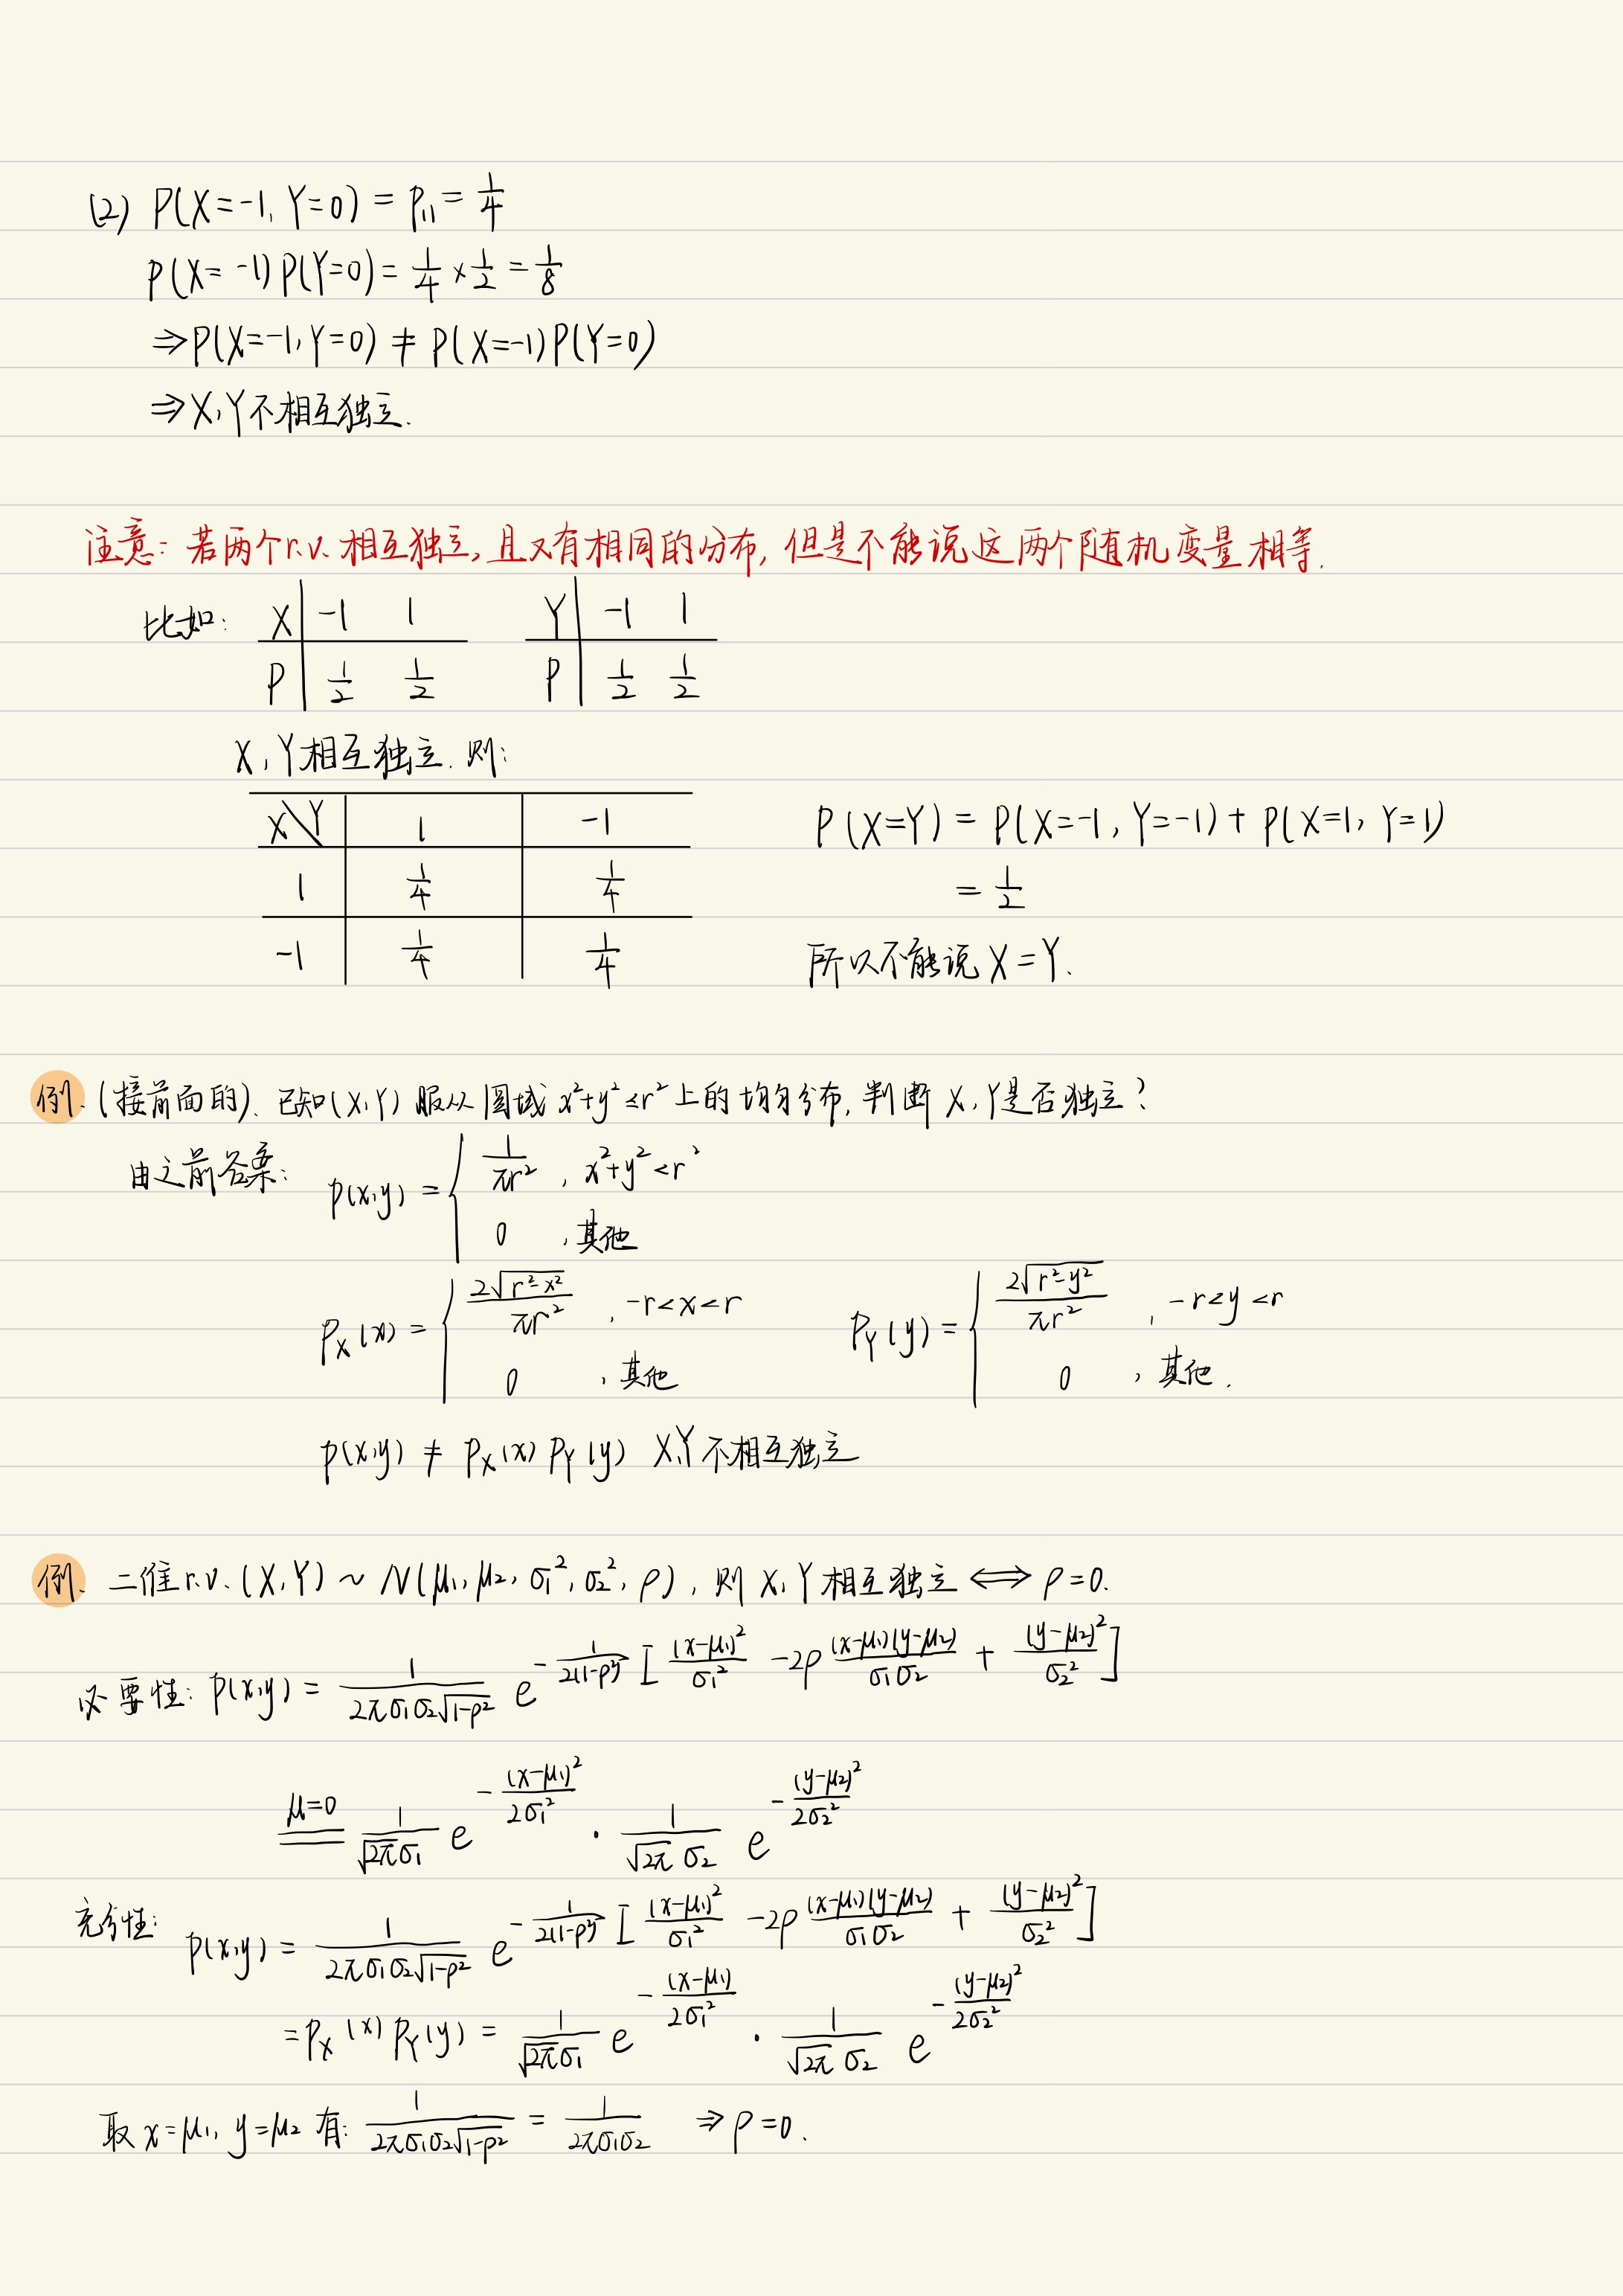 (2) P(X=-1, Y=0) = P₁₁ = 1/4
P(X=-1)P(Y=0) = 1/4 × 1/2 = 1/8
⇒ P(X=-1, Y=0) ≠ P(X=-1)P(Y=0)
⇒ X, Y不相互独立.
注意: 若两个r.v. 相互独立, 且又有相同的分布, 但是不能说这两个随机变量相等.
比如: X | -1 1    Y | -1 1
P | 1/2 1/2    P | 1/2 1/2
X, Y相互独立. 则:
X\Y | 1 | -1    P(X=Y) = P(X=-1, Y=-1) + P(X=1, Y=1)
1 | 1/4 | 1/4    = 1/2
-1 | 1/4 | 1/4    所以不能说 X=Y.
例. (接前面的). 已知(X,Y) 服从圆域 x²+y²≤r² 上的均匀分布, 判断 X, Y是否独立?
由之前答案: p(x,y) = { 1/(πr²) , x²+y²<r²
0 , 其他
p_X(x) = { 2√(r²-x²)/(πr²) , -r<x<r    p_Y(y) = { 2√(r²-y²)/(πr²) , -r<y<r
0 , 其他    0 , 其他.
p(x,y) ≠ p_X(x) p_Y(y) X,Y不相互独立
例. 二维r.v. (X,Y) ~ N(μ₁, μ₂, σ₁², σ₂², ρ), 则 X, Y相互独立 ⟺ ρ=0.
必要性: p(x,y) = 1/(2πσ₁σ₂√(1-ρ²)) e^{-1/(2(1-ρ²)) [(x-μ₁)²/σ₁² -2ρ (x-μ₁)(y-μ₂)/(σ₁σ₂) + (y-μ₂)²/σ₂²]}
μ=0 == 1/(√2π σ₁) e^{-(x-μ₁)²/(2σ₁²)} · 1/(√2π σ₂) e^{-(y-μ₂)²/(2σ₂²)}
充分性: p(x,y) = 1/(2πσ₁σ₂√(1-ρ²)) e^{-1/(2(1-ρ²)) [(x-μ₁)²/σ₁² -2ρ (x-μ₁)(y-μ₂)/(σ₁σ₂) + (y-μ₂)²/σ₂²]}
= p_X(x) p_Y(y) = 1/(√2π σ₁) e^{-(x-μ₁)/(2σ₁²)} · 1/(√2π σ₂) e^{-(y-μ₂)²/(2σ₂²)}
取 x=μ₁, y=μ₂ 有: 1/(2πσ₁σ₂√(1-ρ²)) = 1/(2πσ₁σ₂) ⇒ ρ=0.